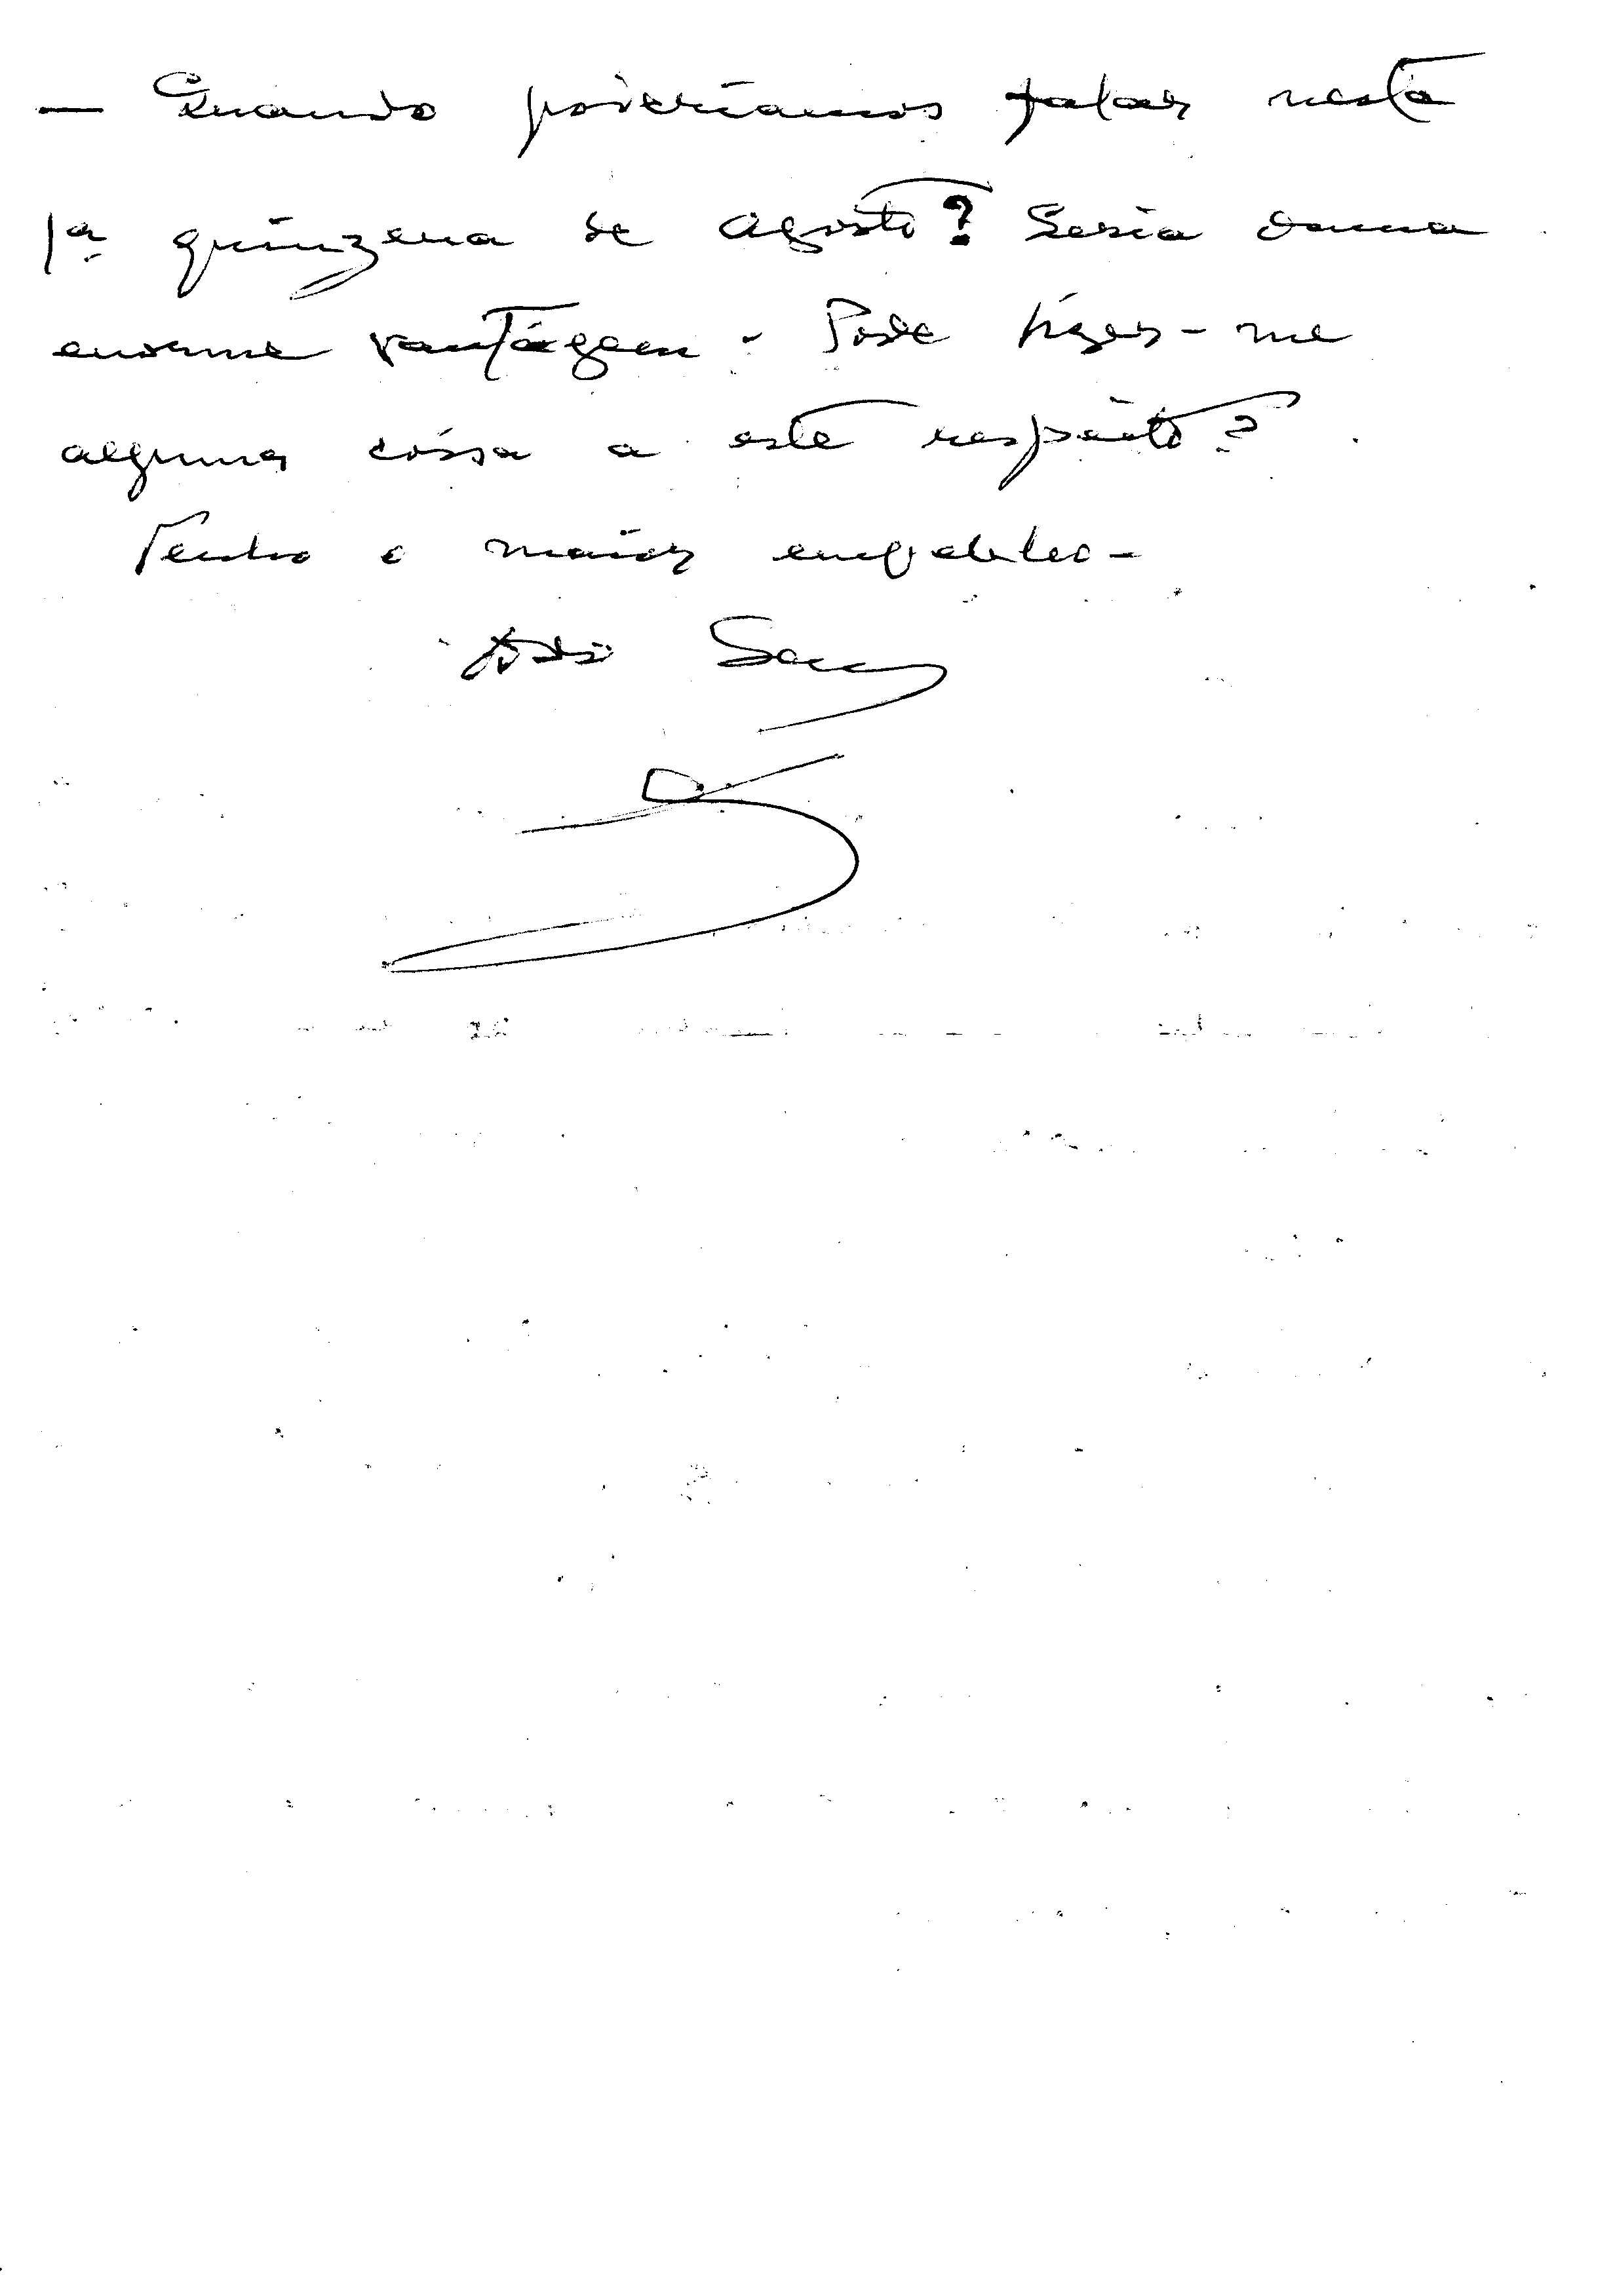 — Quando poderíamos falar nesta
1ª quinzena de Agosto? Seria duma
enorme vantagem. Pode dizer-me
alguma coisa a este respeito?
Tenho o maior empenho -